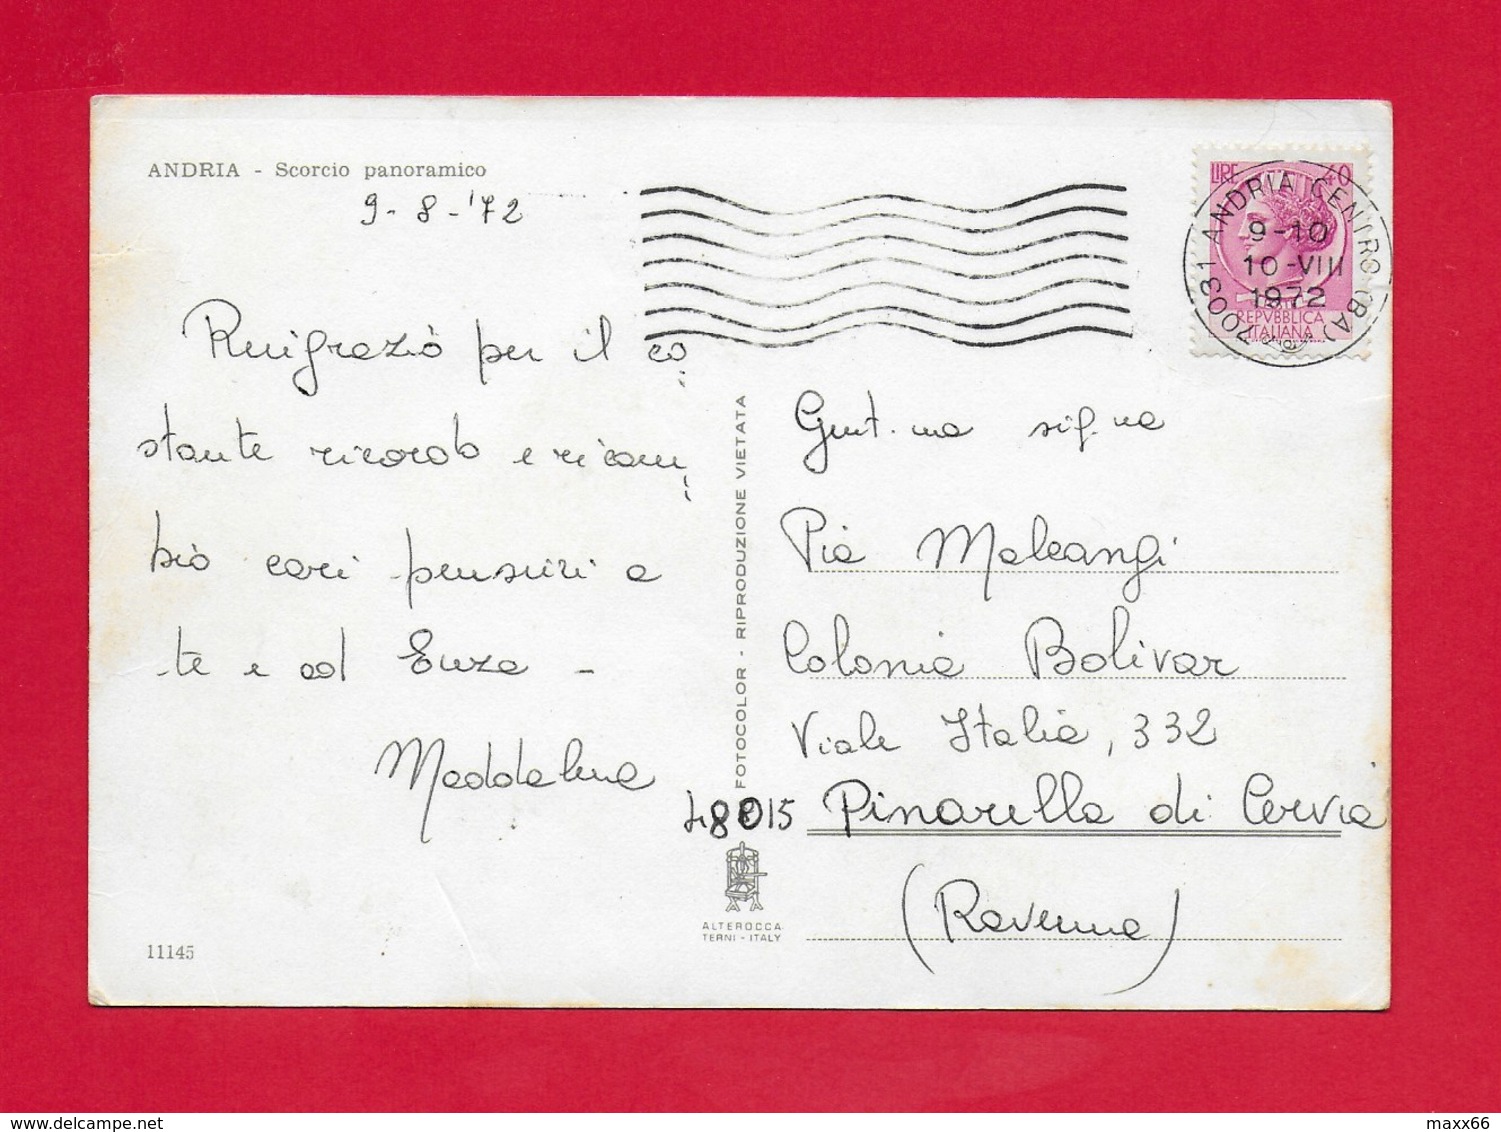 ANDRIA - Scorcio panoramico
9-8-'72
Ringrazio per il co
stante ricordo e ricam
bio cari pensieri a
te e ad Enza -
Maddalena
11145
FOTOCOLOR - RIPRODUZIONE VIETATA
ALTEROCCA
TERNI - ITALY
LIRE 40
REPVBBLICA
ITALIANA
70031 ANDRIA CENTRO (BA)
9-10
10-VIII
1972
Gent.ma sig.na
Pia Malcangi
Colonia Bolivar
Viale Italia, 332
48015 Pinarella di Cervia
(Ravenna)
delcampe.net
maxx66